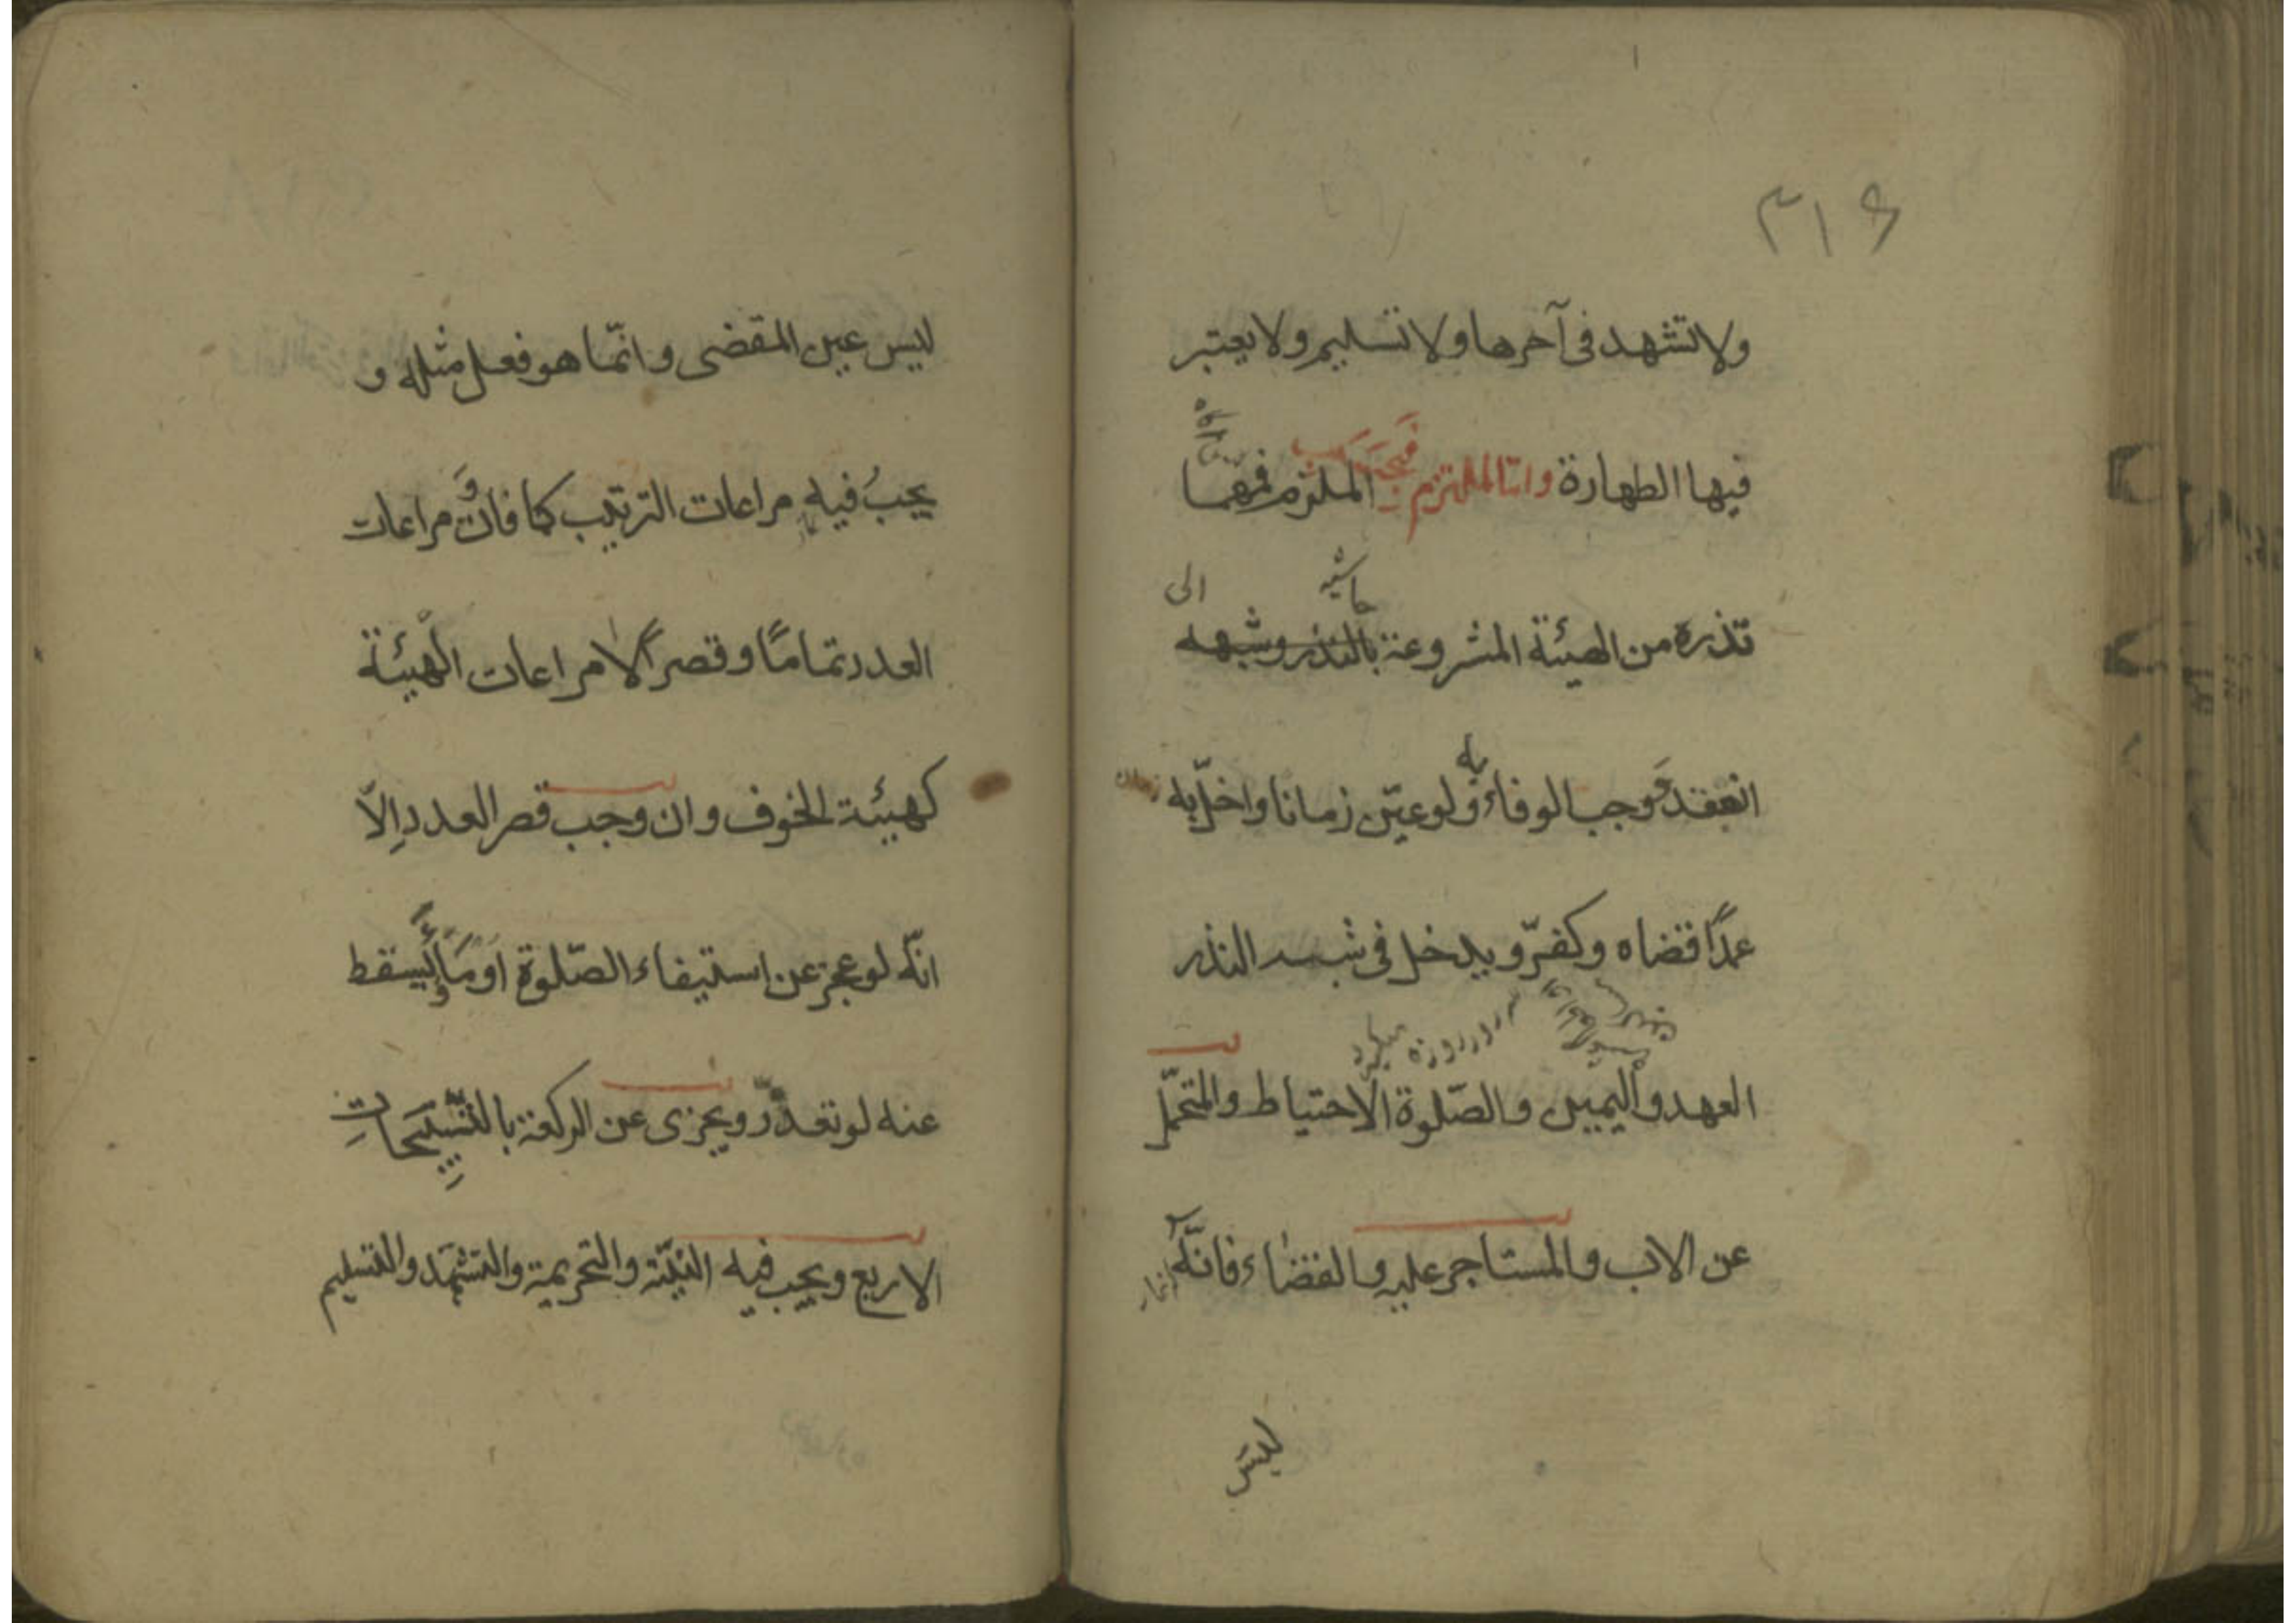 ۳۱۶
ولا تشهد فى آخرها ولا تسليم ولا يعتبر
فيها الطهارة وامّا الملتزم فيجب الملتزم فمهما
حاشيه الى
نذره من الهيئة المشروعة بالنذر وشبهه
انعقد ووجب الوفاء به ولو عيّن زمانا واخلّ به
عمدًا قضاه وكفّر ويدخل فى شبه النذر
روزه ميكيرد
العهد واليمين والصّلوة الاحتياط والمتحمّل
عن الاب والمستاجر عليه والقضاء فانّه
ليس
ليس عين المقضى وانّما هو فعل مثله و
يجبُ فيه مراعات الترتيب كما فات ومراعات
العدد تمامًا وقصرًا لا مراعات الهيئة
كهيئة الخوف وان وجب قصر العدد إلّا
انّه لو عجز عن استيفاء الصّلوة اومأ ويسقط
عنه لو تعذّر ويجزى عن الركعة بالتسبيحات
الاربع ويجب فيه النيّة والتحريمة والتشهّد والتسليم